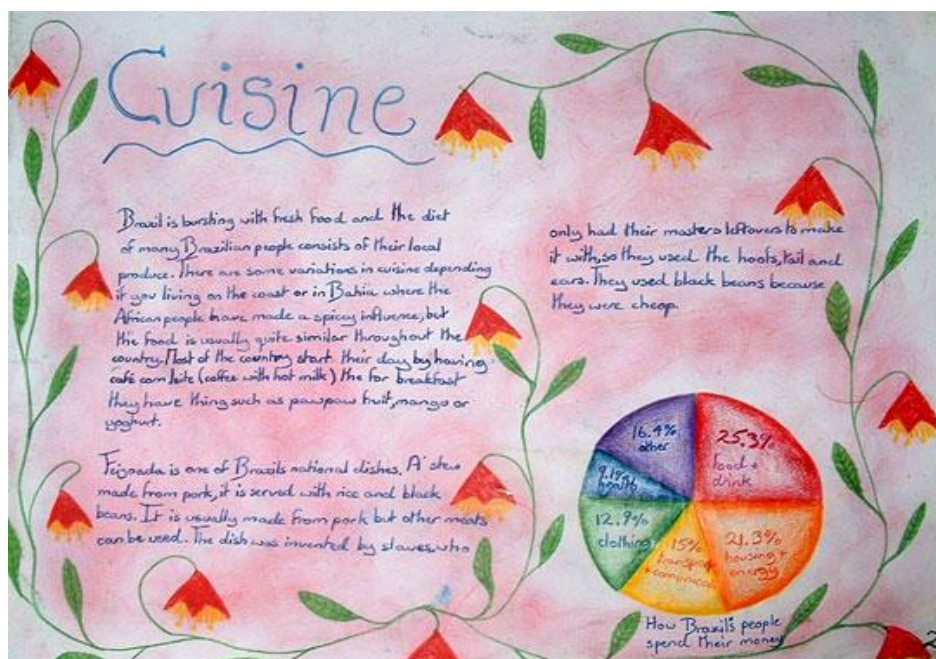 Cuisine
Brazil is bursting with fresh food and the diet
of many Brazilian people consists of their local
produce. There are some variations in cuisine depending
if you living on the coast or in Bahia where the
African people have made a spicy influence, but
the food is usually quite similar throughout the
country. Most of the country start their day by having
café com leite (coffee with hot milk) the for breakfast
they have thing such as pawpaw fruit, mango or
yoghurt.
Feijoada is one of Brazils national dishes. A stew
made from pork, it is served with rice and black
beans. It is usually made from pork but other meats
can be used. The dish was invented by slaves who
only had their masters leftovers to make
it with, so they used the hoofs, tail and
ears. They used black beans because
they were cheap.
16.4%
other
25.3%
food +
drink
9.1%
health
12.9%
clothing
15%
transport
+
21.3%
housing +
energy
How Brazil's people
spend their money
2